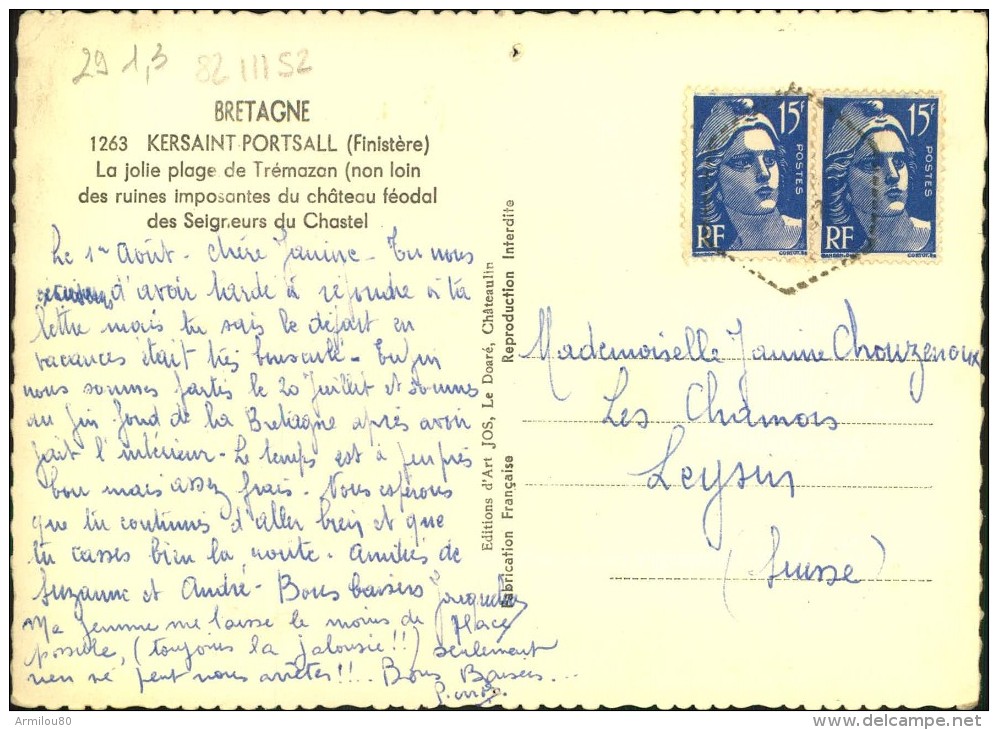 29 1,3
82 III 52
BRETAGNE
1263 KERSAINT-PORTSALL (Finistère)
La jolie plage de Trémazan (non loin
des ruines imposantes du château féodal
des Seigneurs du Chastel
Le 1er Août - Chère Janine - Tu nous
d'avoir tardé à répondre à ta
lettre mais tu sais le départ en
vacances était très bousculé - Enfin
nous sommes partis le 20 Juillet et sommes
au fin fond de la Bretagne après avoir
fait l'intérieur - Le temps est à peu près
bon mais assez frais - Nous espérons
que tu continues d'aller bien et que
tu casses bien la croute - Amitiés de
Suzanne et André - Bons baisers Jacqueline
Ma femme me laisse le moins de place
possible, (toujours la jalousie!!) seulement
rien ne peut nous arrêter!!! - Bons Baisers...
Pierrot.
Editions d'Art JOS, Le Doaré, Châteaulin
Fabrication Française Reproduction Interdite
15F
POSTES
RF
15F
POSTES
RF
Mademoiselle Janine Chouzenoux
Les Chamois
Leysin
(Suisse)
Armilou80
delcampe.net